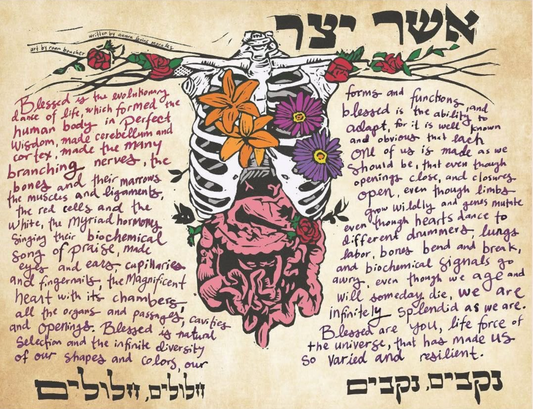 אשר יצר
written by
art by
Blessed is the evolutionary
dance of life, which formed the
human body in perfect
wisdom, made cerebellum and
cortex, made the many
branching nerves, the
bones and their marrows
the muscles and ligaments,
the red cells and the
white, the myriad hormones
singing their biochemical
song of praise, made
eyes and ears, capillaries
and fingernails, the magnificent
heart with its chambers
all the organs and passages, cavities
and openings. Blessed is natural
selection and the infinite diversity
of our shapes and colors, our
forms and functions, and
blessed is the ability to
adapt, for it is well known
and obvious that each
one of us is made as we
should be, that even though
openings close, and closures
open, even though limbs
grow wildly, and genes mutate
even though hearts dance to
different drummers, lungs
labor, bones bend and break,
and biochemical signals go
awry, even though we age and
will someday die, we are
infinitely splendid as we are.
Blessed are you, life force of
the universe, that has made us
so varied and resilient.
נקבים, נקבים
חלולים, חלולים